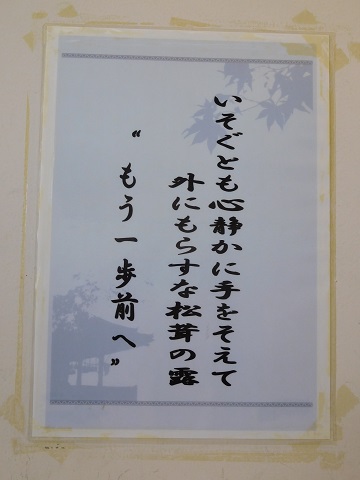 いそぐとも心静かに手をそえて
外にもらすな松茸の露
“もう一歩前へ”